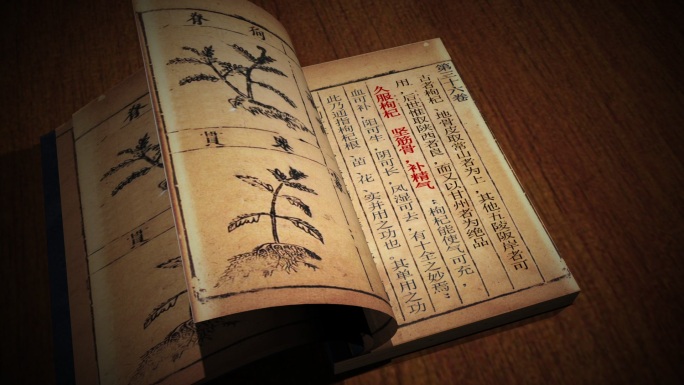 第三十六卷
古者枸杞、地骨皮取常山者为上,其他五陵阪岸者可
用。后世惟取陕西者良,而又以甘州者为绝品
久服枸杞 坚筋骨,补精气;枸杞能使气可充,
血可补,阳可生,阴可长,风湿可去,有十全之妙焉;
此乃通指枸杞根、苗、花、实并用之功也。其单用之功
狗脊
貫
脊
貫